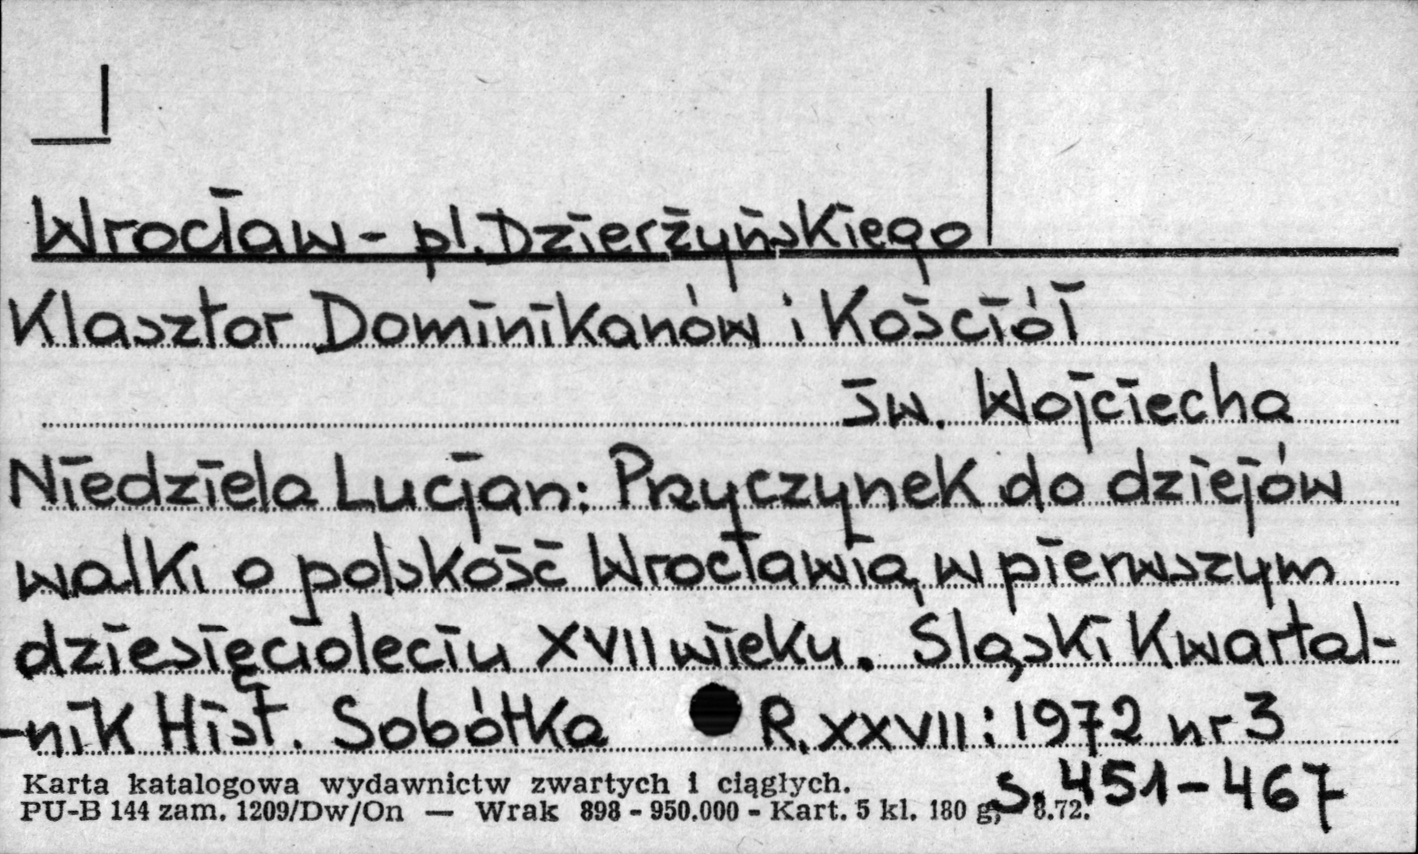 Wrocław - pl. Dzierżyńskiego
Klasztor Dominikanów i Kościół
św. Wojciecha
Niedziela Lucjan: Przyczynek do dziejów
walki o polskość Wrocławia w pierwszym
dziesięcioleciu XVII wieku. Śląski Kwartal-
-nik Hist. Sobótka R. XXVII: 1972 nr 3
s. 451-467
Karta katalogowa wydawnictw zwartych i ciągłych.
PU-B 144 zam. 1209/Dw/On — Wrak 898 - 950.000 - Kart. 5 kl. 180 g, 8.72.